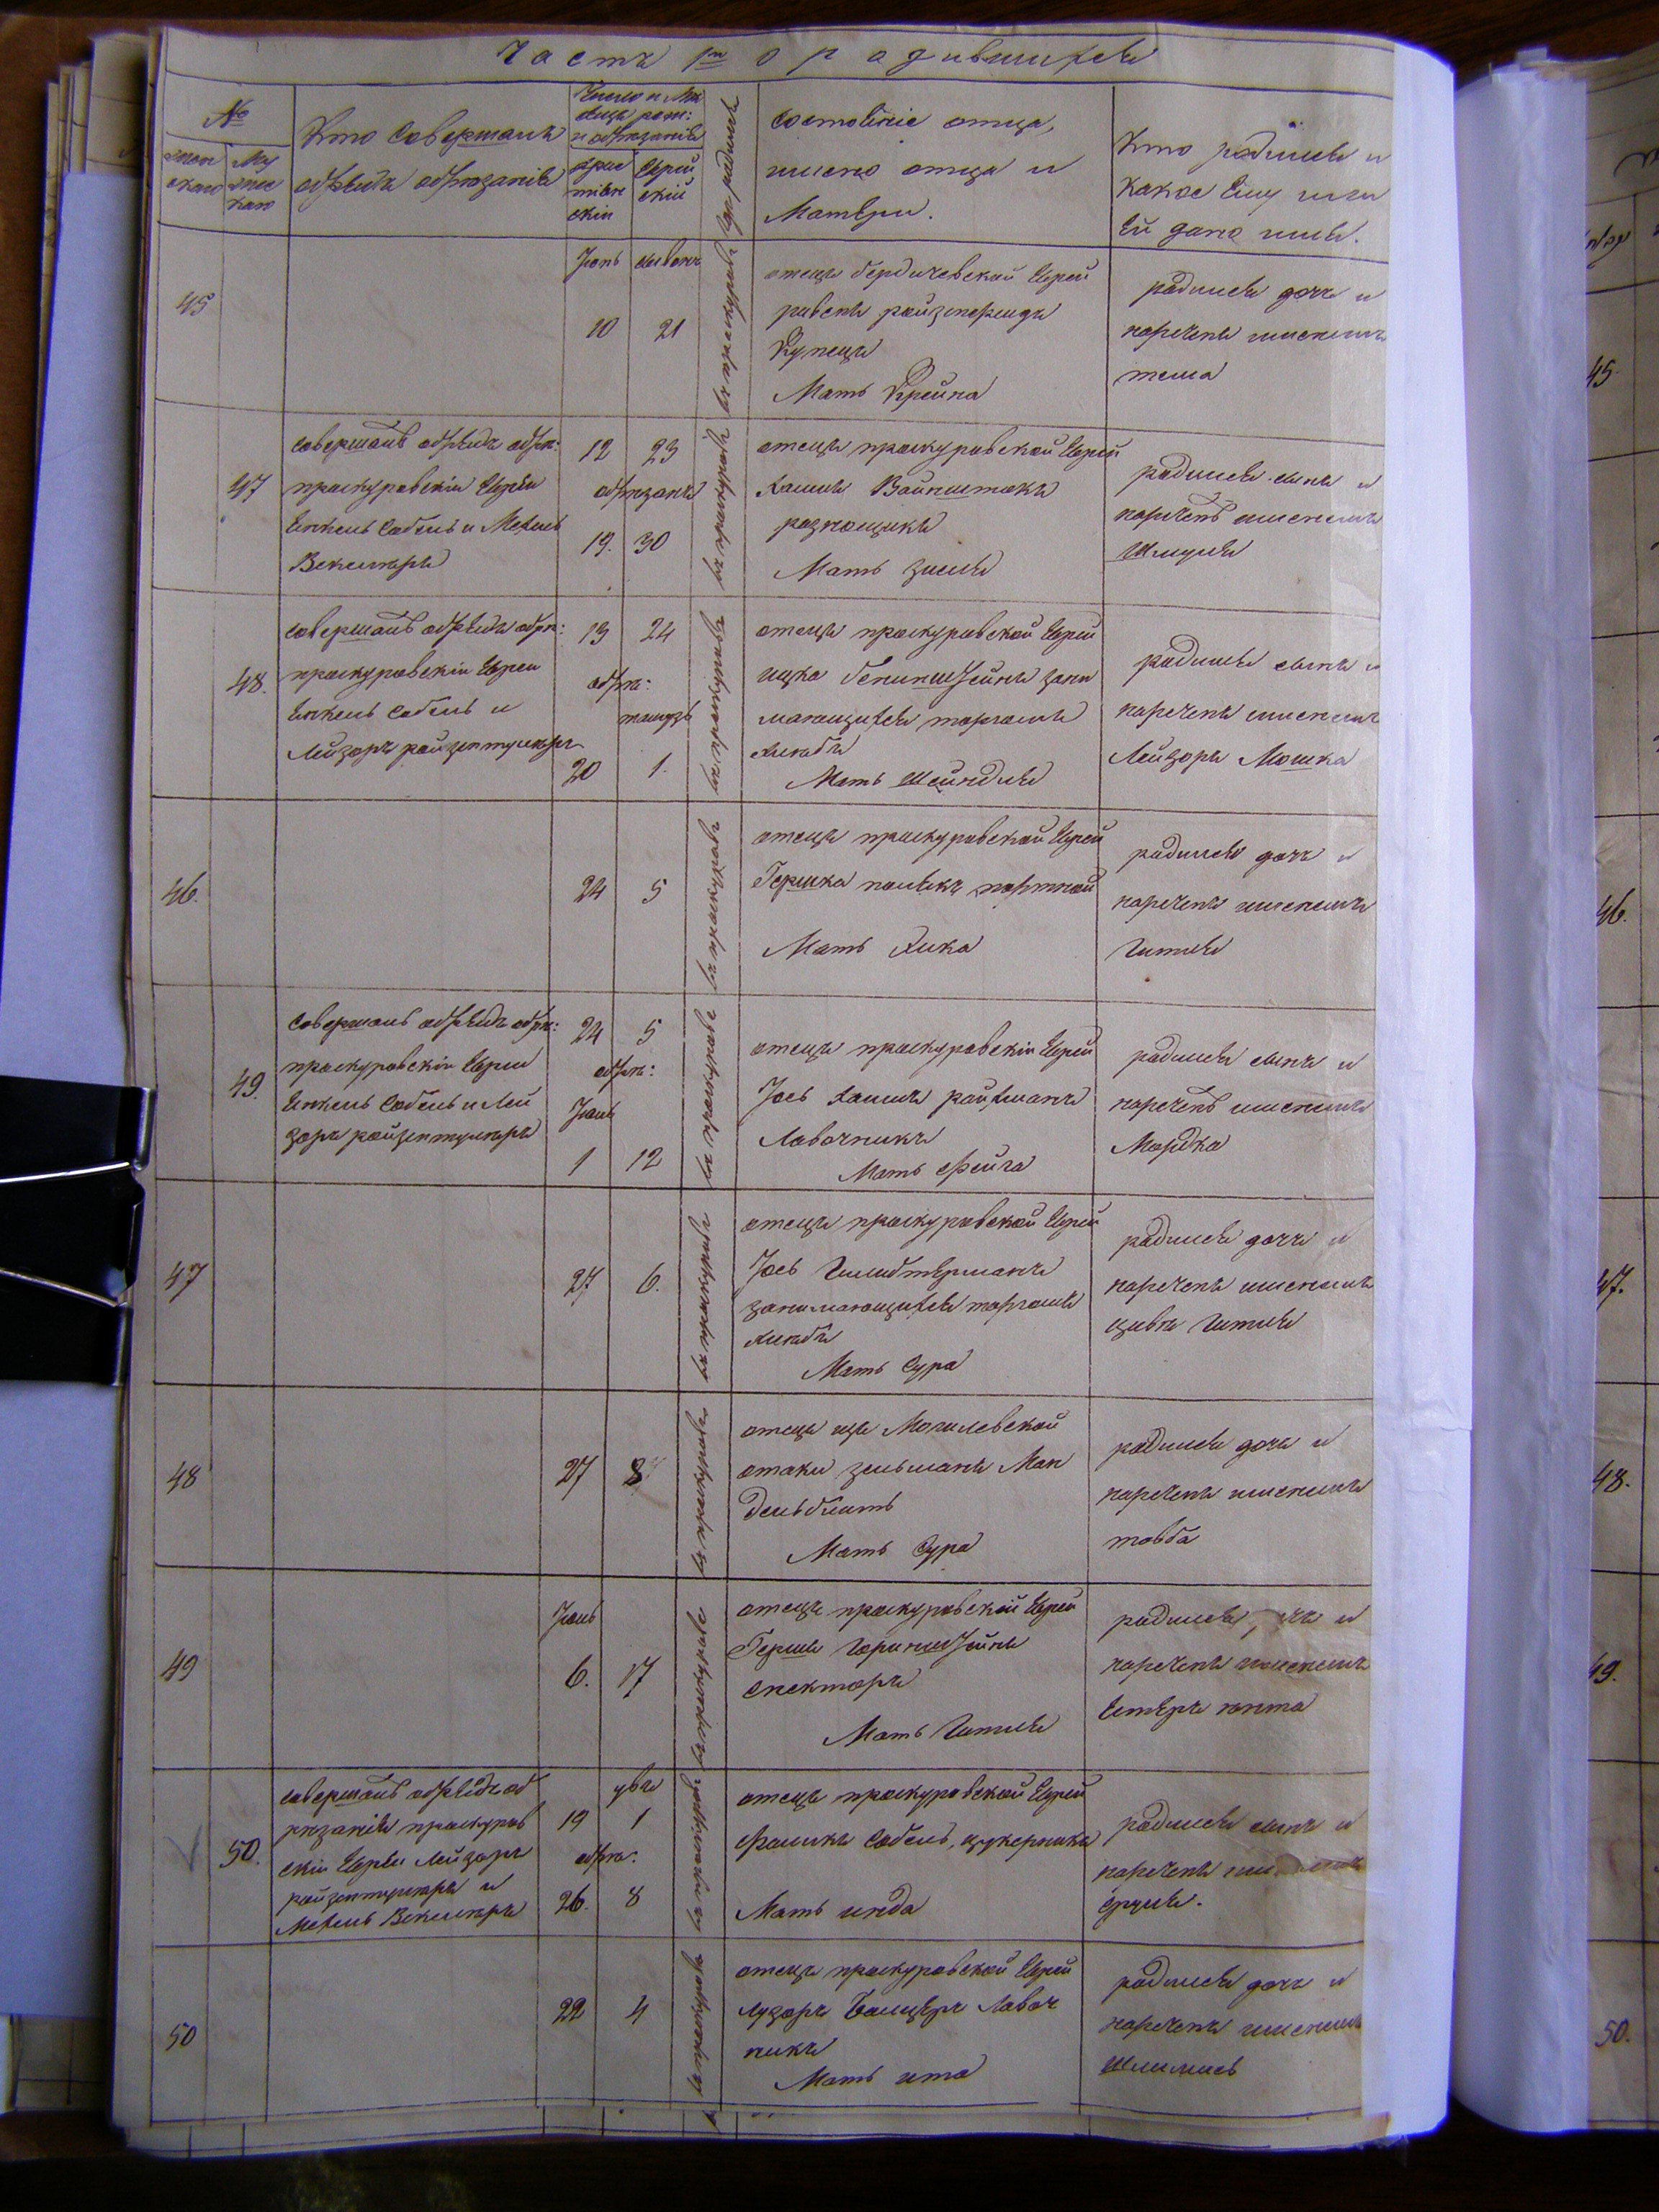 Часть 1я о родившихся
№
Жен
скаго
Муж
скаго
Кто совершалъ
обрядъ обрезанія
Число и Мѣ
сяцъ рож:
и обрезанія
хрис
тіян
скій
Еврей
скій
где родился
Состояніе отца,
имено отца и
Матери.
Кто родился и
какое Ему или
Ей дано имя.
45
Іюнь
сивонъ
10
21
въ проскурове
отецъ бердичевской Еврей
Купецъ
Мать Крейна
родился дочь и
нареченъ именемъ
тема
47
совершалъ обрядъ обрѣ:
проскуровскіи Евреи
Янкель Собель и Мехель
Векслеръ
12
23
обрезанъ
19.
30
въ проскурове
отецъ проскуровской Еврей
Хаимъ Вайнштокъ
разнощикъ
Мать Зисля
родился сынъ и
нареченъ именемъ
Шмуля
48.
совершалъ обрядъ обрѣ:
проскуровскіи Евреи
Янкель Собель и
Лейзоръ
13
24
обрѣ:
тамузъ
20
1.
въ проскурове
отецъ проскуровской Еврей
ицко зани
мающихся торгомъ
хлеба
Мать Шейндля
родился сынъ и
нареченъ именемъ
Лейзоръ Мошка
46.
24
5
въ проскурове
отецъ проскуровской Еврей
Гершка полякъ портной
Мать Хика
родился дочь и
нареченъ именемъ
Гитля
49.
совершалъ обрядъ обрѣ:
проскуровскіи Евреи
Янкель Собель и Лей
зоръ
24
5
обрѣ:
Іюль
1
12
въ проскурове
отецъ проскуровскіи Еврей
Іось Хаимъ ройхманъ
Лавочникъ
Мать Фейга
родился сынъ и
нареченъ именемъ
Мордка
47
27
6.
въ проскурове
отецъ проскуровской Еврей
Іось
занимающихся торгомъ
хлеба
Мать Сура
родился дочь и
нареченъ именемъ
цивя Гитля
48
27
8
въ проскурове
отецъ изъ Могилевской
отаки зельманъ Ман
дельблатъ
Мать Сура
родился дочь и
нареченъ именемъ
товба
49
Іюль
6.
17
въ проскурове
отецъ проскуровской Еврей
Герш
спекторъ
Мать Гитля
родился и
нареченъ именемъ
Естеръ юнта
50.
совершалъ обрядъ об
резанія проскуров
скіи Евреи Лейзоръ
и
Мехель Векслеръ
увъ
19
1
обрѣ:
26.
8
въ проскурове
отецъ проскуровской Еврей
Фоликъ Собель, цукерникъ
Мать инда
родился сынъ и
нареченъ
сруля.
50
22
4
въ проскурове
отецъ проскуровской Еврей
Лузоръ Лавоч
никъ
Мать ита
родился дочь и
нареченъ именемъ
45.
46.
47.
48.
49.
50.